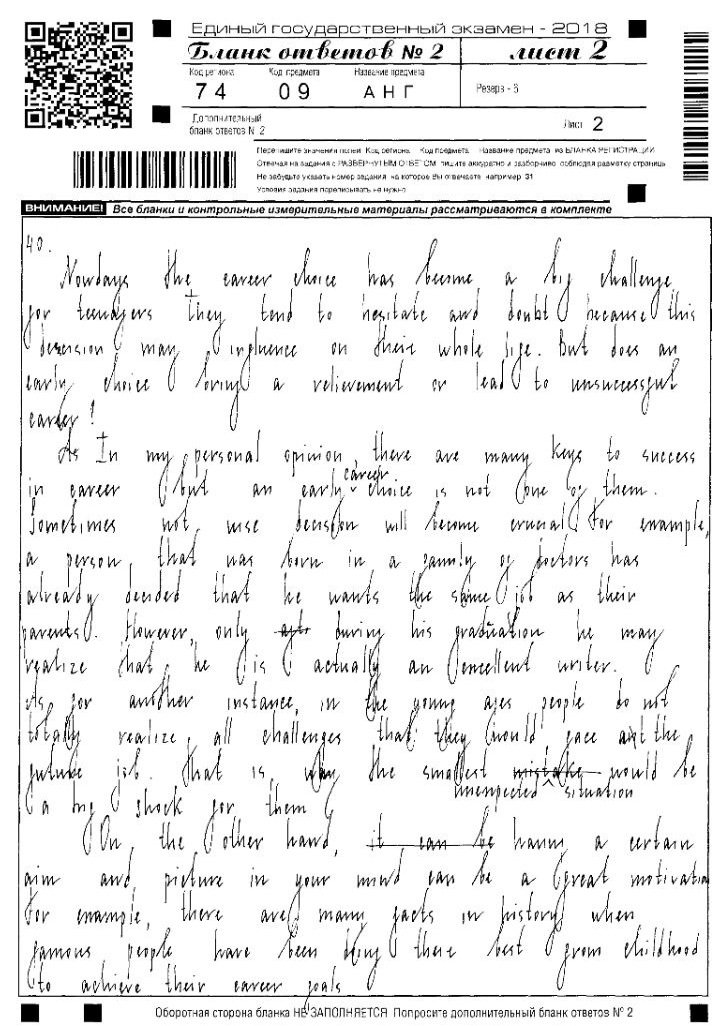 Единый государственный экзамен - 2018
Бланк ответов № 2 лист 2
Код региона Код предмета Название предмета
74 09 АНГ
Резерв - 6
Дополнительный
бланк ответов № 2
Лист 2
Перепишите значения полей Код региона Код предмета Название предмета из БЛАНКА РЕГИСТРАЦИИ
Отвечая на задания с РАЗВЕРНУТЫМ ОТВЕТОМ пишите аккуратно и разборчиво соблюдая разметку страницы
Не забудьте указать номер задания на которое Вы отвечаете например 31
Условия задания переписывать не нужно
ВНИМАНИЕ! Все бланки и контрольные измерительные материалы рассматриваются в комплекте
40.
Nowdays the career choice has become a big challenge
for teenagers They tend to hesitate and doubt because this
desension may influence on their whole life. But does an
early choice bring a relievement or lead to unsuccessful
career?
As In my personal opinion, there are many keys to success
in career but an early career choice is not one of them.
Sometimes not wise decision will become crucial For example,
a person, that was born in a family of doctors has
already decided that he wants the same job as their
parents. However, only after during his graduation he may
realize that he is actually an excellent writer.
As for another instance, in the young ages people do not
totally realize all challenges that they would face at the
future job. That is why the smallest mistake would be
unexpected situation
a big shock for them
On the other hand, it can be having a certain
aim and picture in your mind can be a great motivation
For example, there are many facts in history when
famous people have been doing there best from childhood
to achieve their career goals
Оборотная сторона бланка НЕ ЗАПОЛНЯЕТСЯ Попросите дополнительный бланк ответов № 2